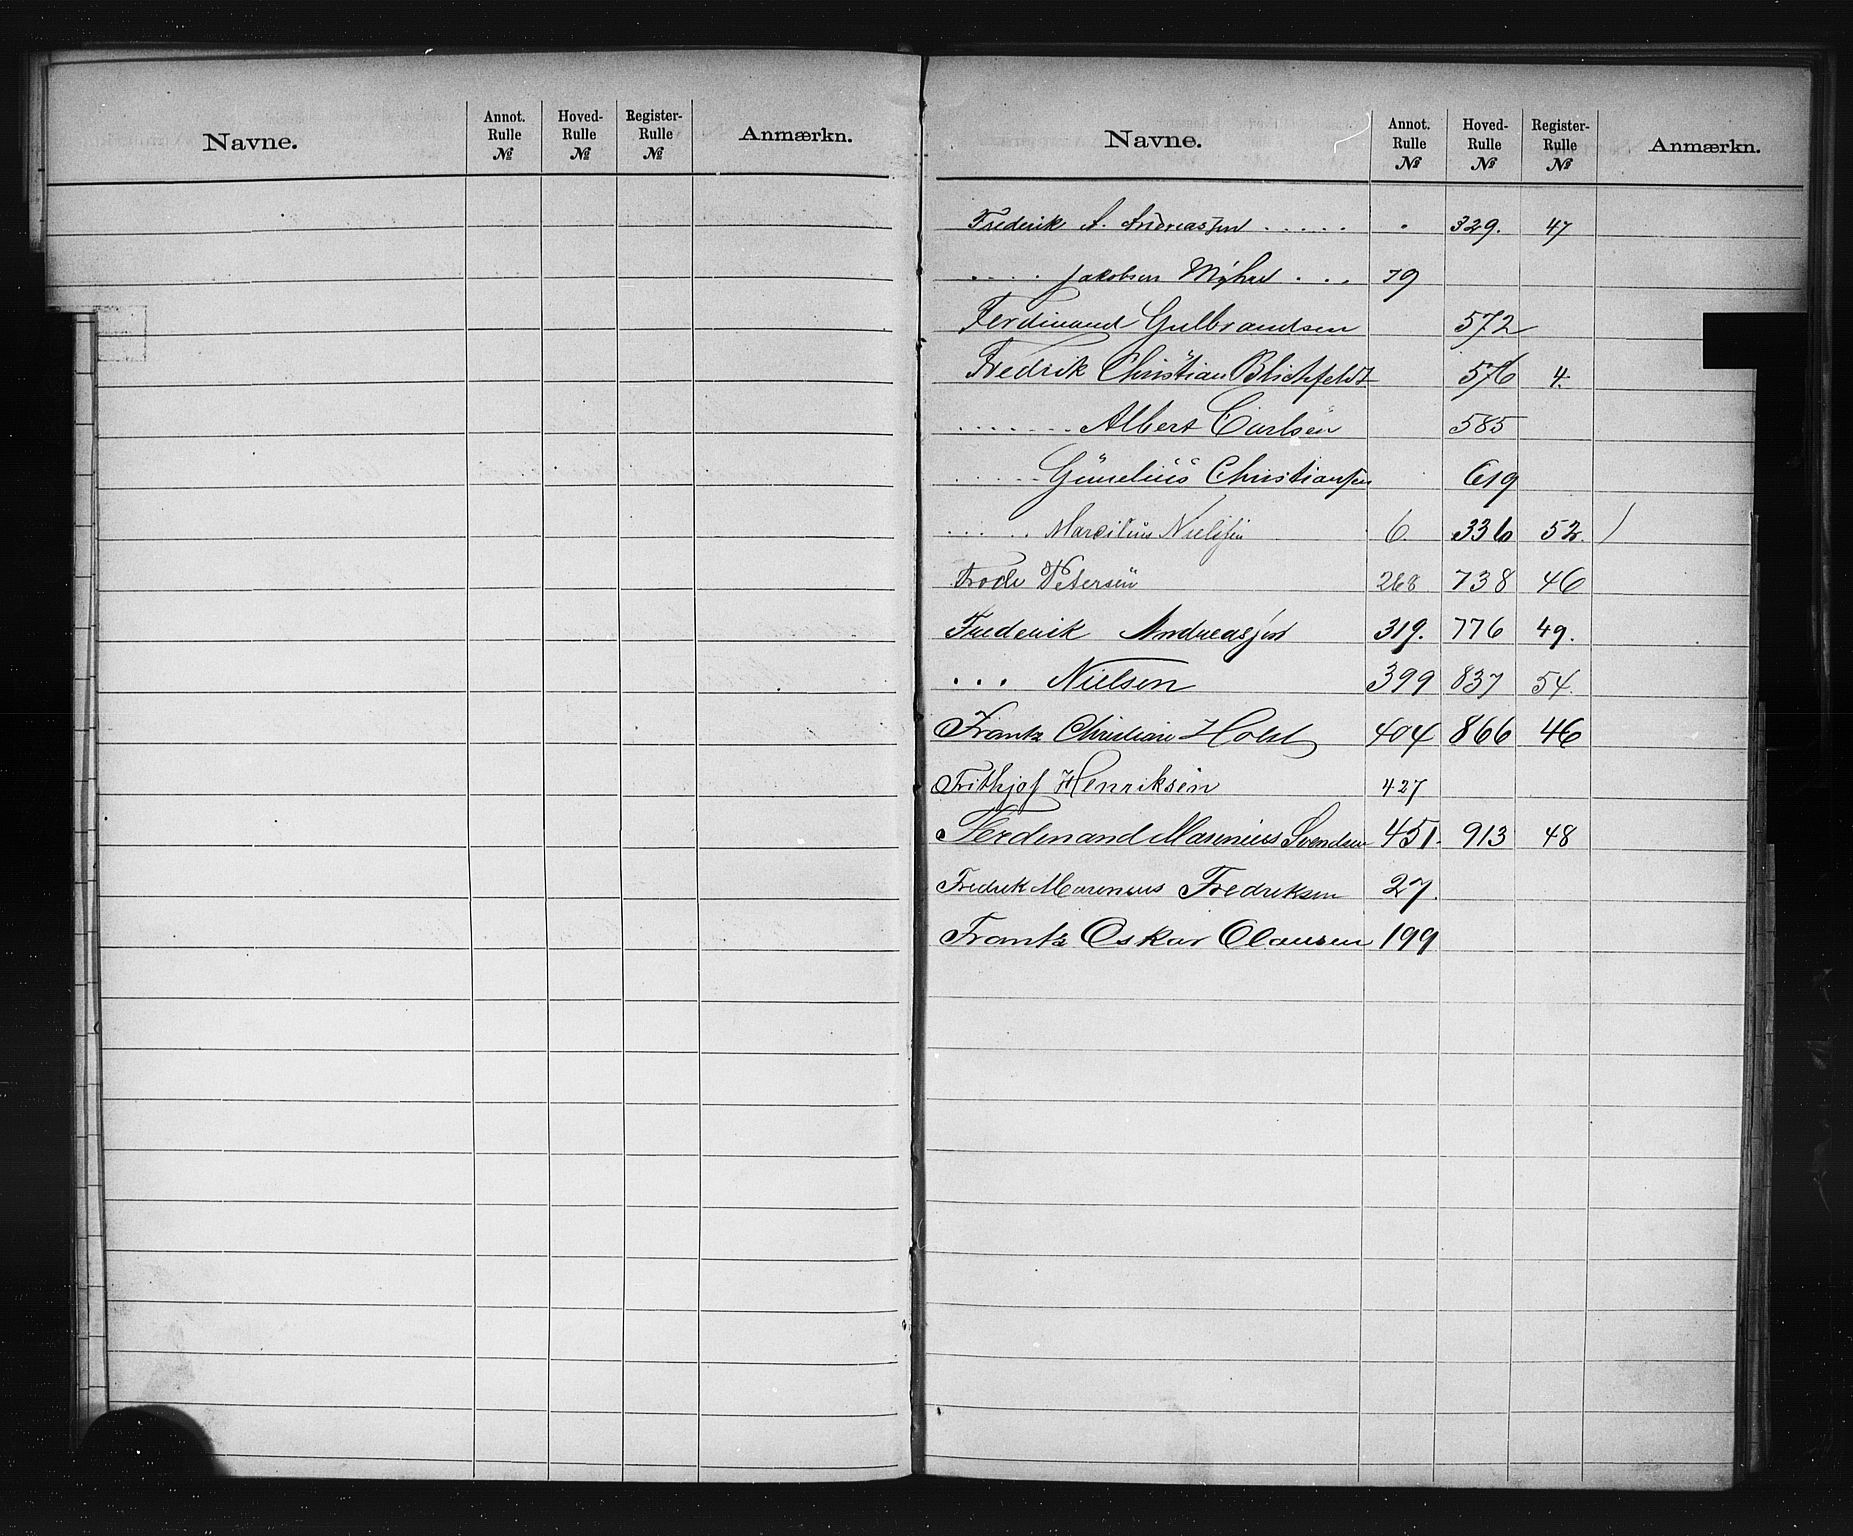 Navne. Annot. Rulle № Hoved- Rulle № Register- Rulle № Anmærkn.
Navne. Annot. Rulle № Hoved- Rulle № Register- Rulle № Anmærkn.
Frederik A. Andreassen . . . . . . 329. 47
. . . . Jakobsen Myhre . . . 79
Ferdinand Gulbrandsen 572
Fredrik Christian Blichfeldt 576 4.
. . . . . . . Albert Carlsen 585
. . . . . Christiansen 619
. . . . . Marcilius Nielsen 6. 336 52. /
Frode Petersen 268 738 46
Frederik Andreassen 319. 776 49.
. . . Nielsen 399 837 54.
Frantz Christian Holst 404 866 46
Frithjof Henriksen 427
Ferdinand Marenius Svendsen 451. 913 48
Fredrik Marenius Fredriksen 27.
Frantz Oskar Clausen 199